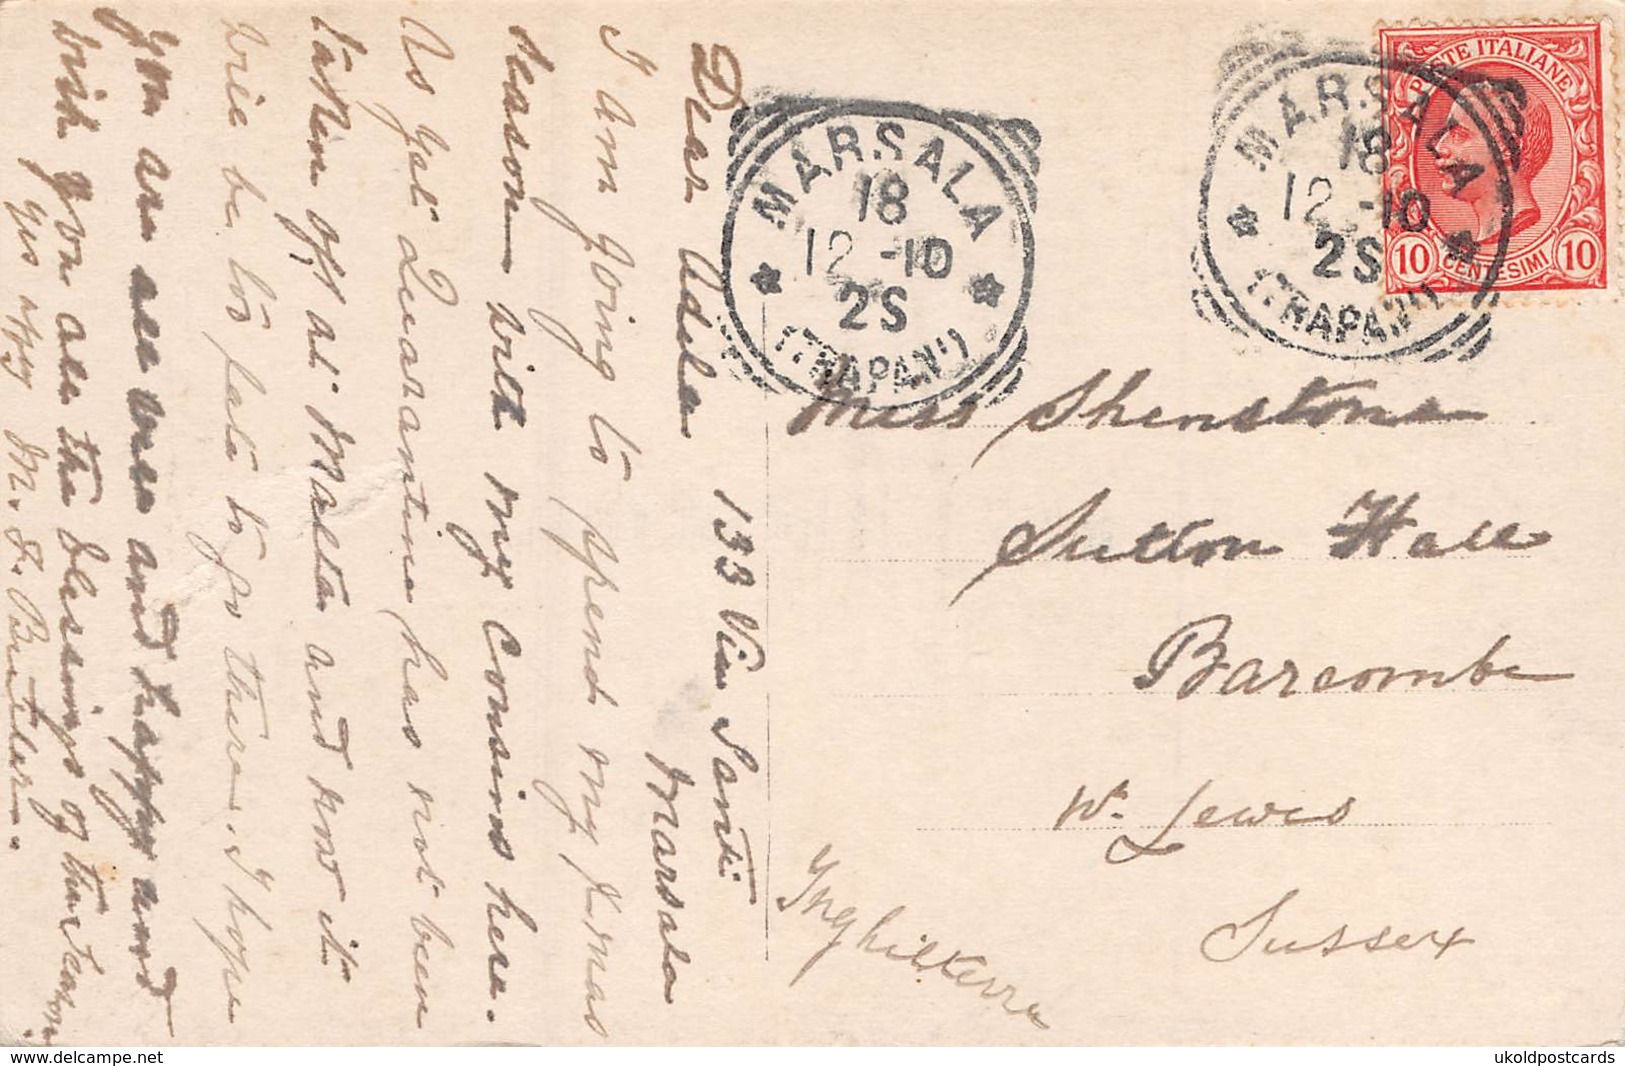 133 Via Santi
Marsala
Dear Adela
I am going to spend my Xmas
season with my Cousins here.
As yet Quarantine has not been
taken off at Malta and now it
will be too late to go there. I hope
you are all well and happy and
wish you all the blessings of the Season
Yrs affy M. J. Butler.
POSTE ITALIANE
10 CENTESIMI 10
MARSALA
18
12 -10
2S
(TRAPANI)
MARSALA
18
12 -10
2S
(TRAPANI)
Miss Shenstone
Sutton Hall
Barcombe
Nr. Lewes
Sussex
Inghilterra
www.delcampe.net
ukoldpostcards